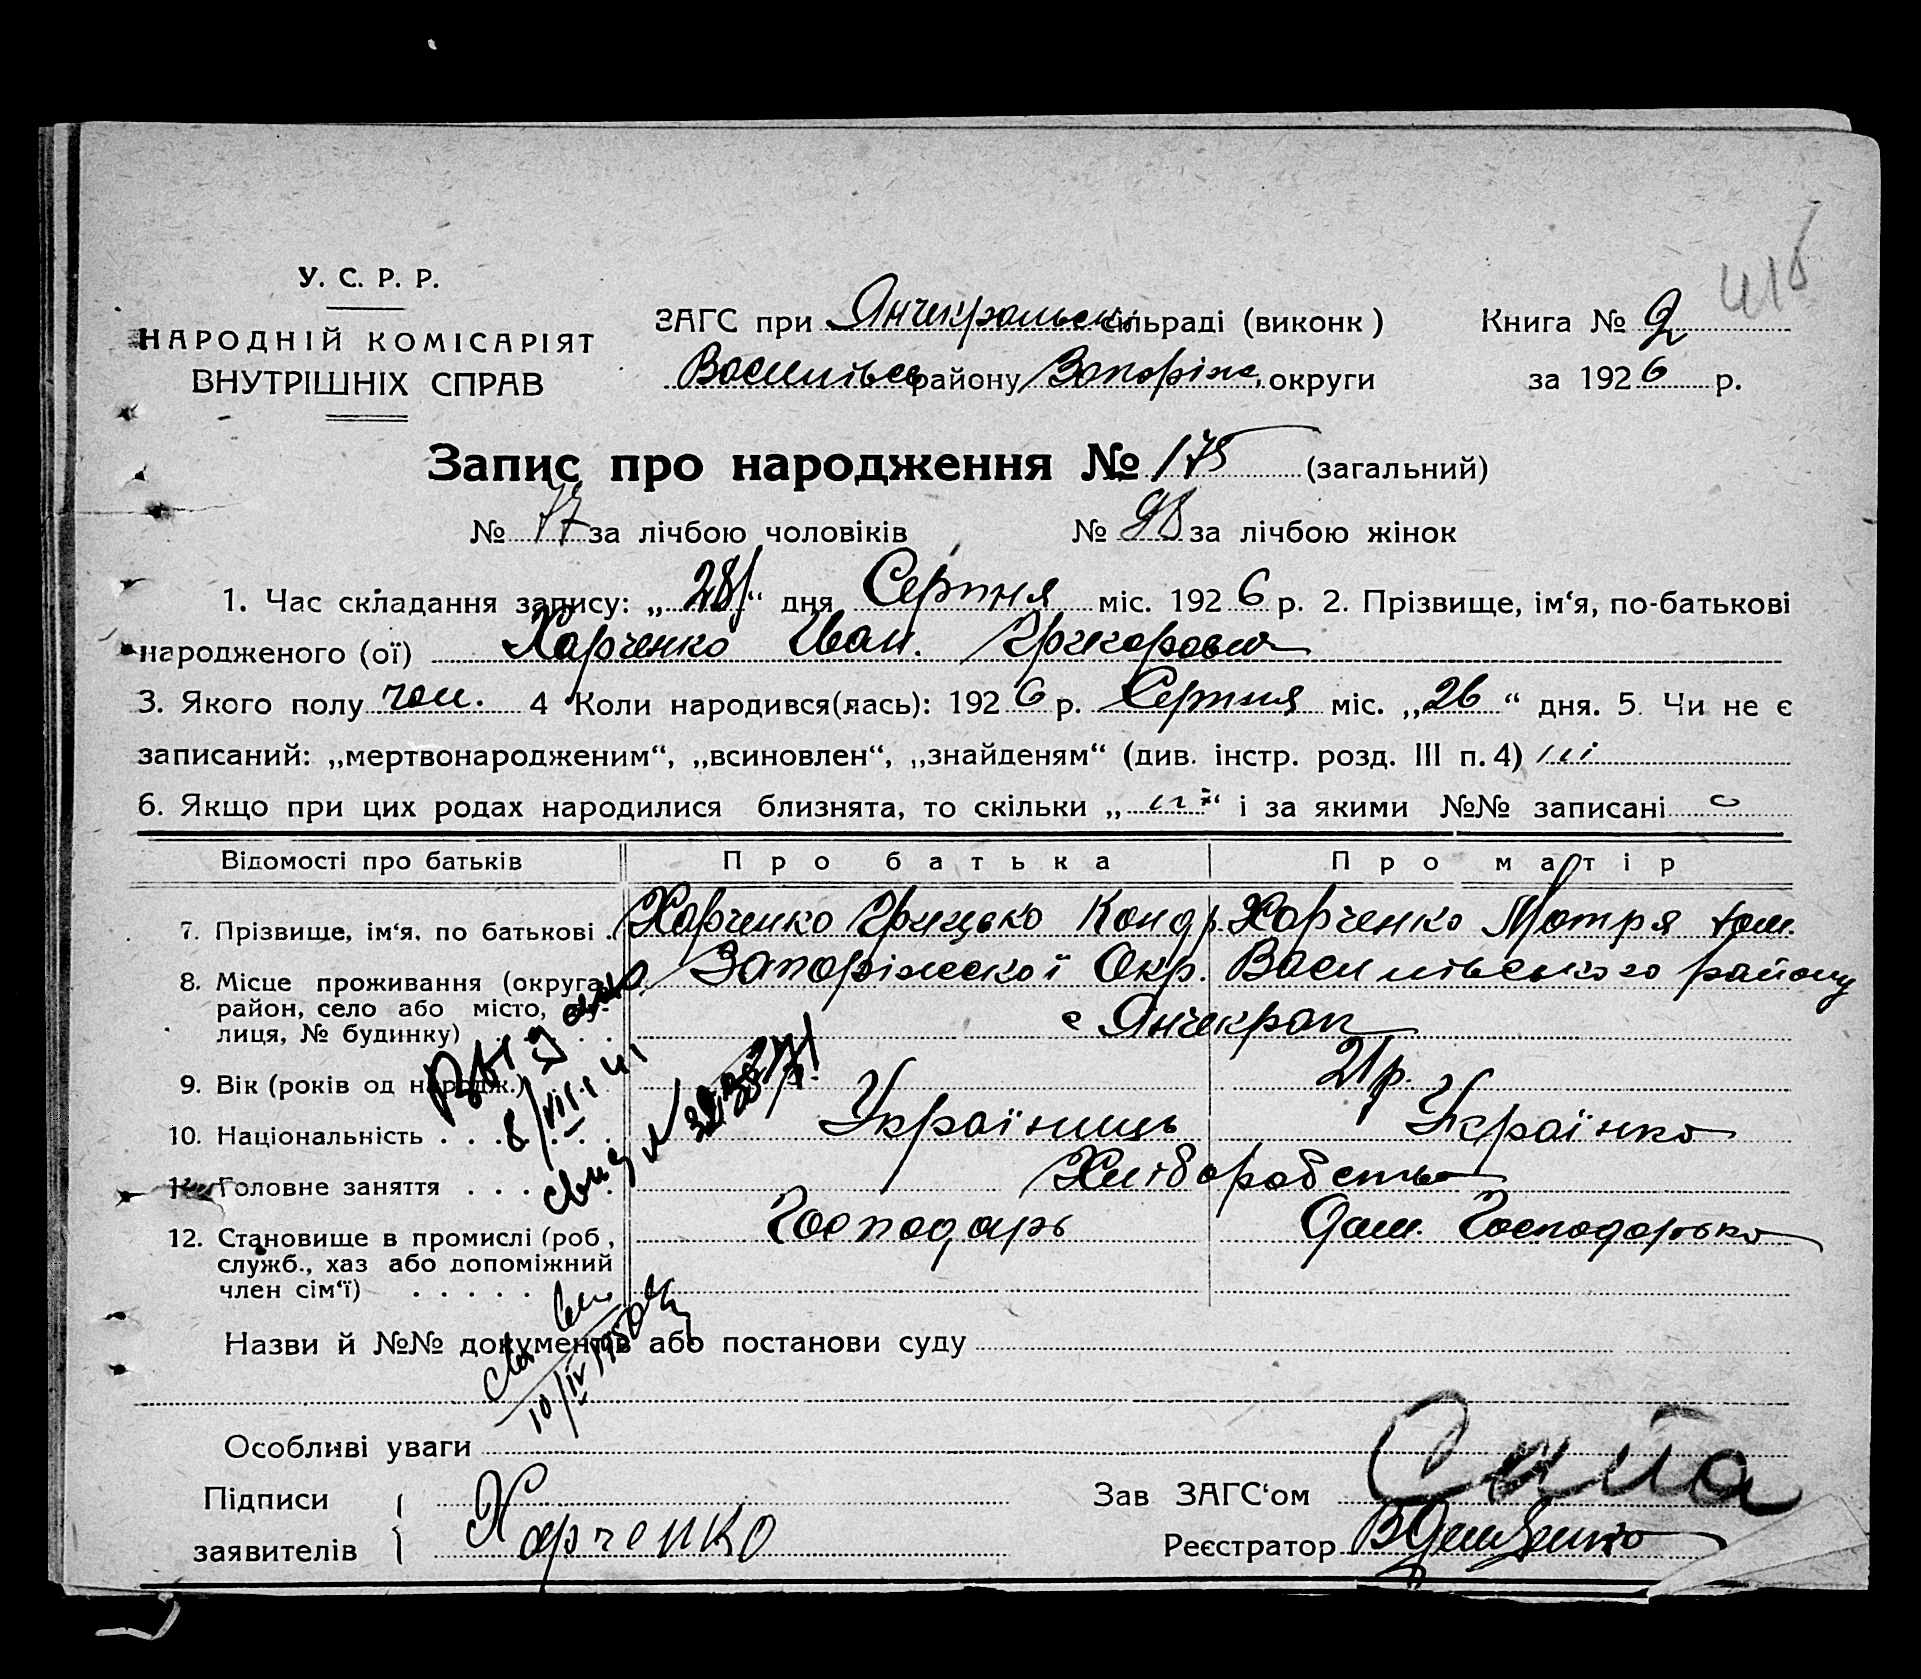 У. С. Р. Р.
НАРОДНІЙ КОМІСАРІЯТ
ВНУТРІШНІХ СПРАВ
ЗАГС при Янчекральськ сільраді (виконк)
Василівськ району Запоріж. округи
Книга № 2
за 1926 р.
Запис про народження № 175 (загальний)
№ 77 за лічбою чоловіків № 98 за лічбою жінок
1. Час складання запису: „28“ дня Серпня міс. 1926 р. 2. Прізвище, ім‘я, по-батькові
народженого (ої) Харченко Іван. Григорович
3. Якого полу чол. 4 Коли народився(лась): 1926 р. Серпня міс. „26“ дня. 5. Чи не є
записаний: „мертвонародженим“, „всиновлен“, „знайденям“ (див. інстр. розд. III п. 4) ні
6. Якщо при цих родах народилися близнята, то скільки „ні“ і за якими №№ записані
Відомості про батьків Про батька Про матір
7. Прізвище, ім‘я, по батькові Харченко Грицько Конд. Харченко Мотря
8. Місце проживання (округа, Запоріжської Окр. Василівського району
район, село або місто, ву-
лиця, № будинку) с Янчекрак
9. Вік (років од народж.) 21 р.
10. Національність Українець Українка
11. Головне заняття Хліборобство
12. Становище в промислі (роб, Господарь Дом. Господарька
служб., хаз або допоміжний
член сім‘ї)
Назви й №№ документів або постанови суду
10/IV 1950
Особливі уваги
Підписи
заявителів Харченко
Зав ЗАГС‘ом
Реєстратор